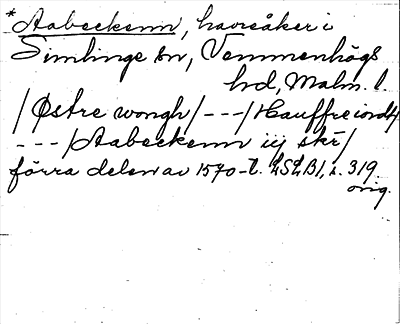 * Aabeckenn, havreåker i
Simlinge sn, Vemmenhögs
hd, Malm. l.
/Østre wongh/---/Hauffreiordt/
---/Aabeckenn iij skr/
förra delen av 1570-t. LSLB1, s. 319.
orig.